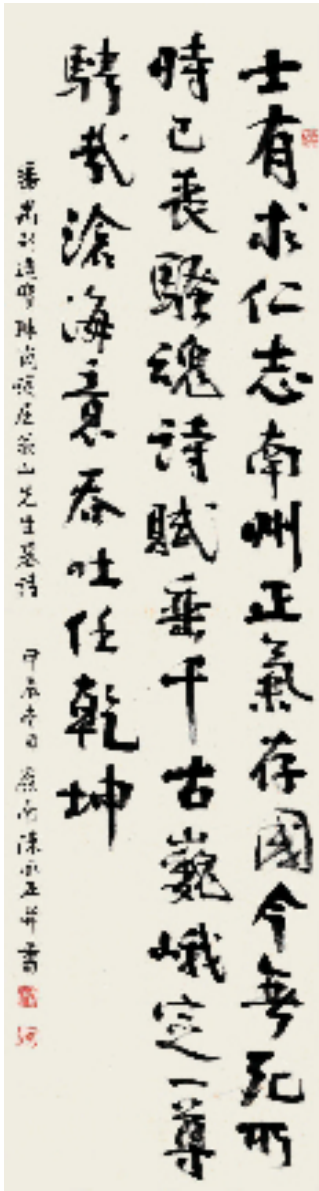 士有求仁志南州正氣存國今無死所
時已喪騷魂詩賦垂千古巍峨定一尊
騁哉滄海意吞吐任乾坤
番禺新造雙珠崗謁屈翁山先生墓詩 甲辰春日 嶺南陳永正并書